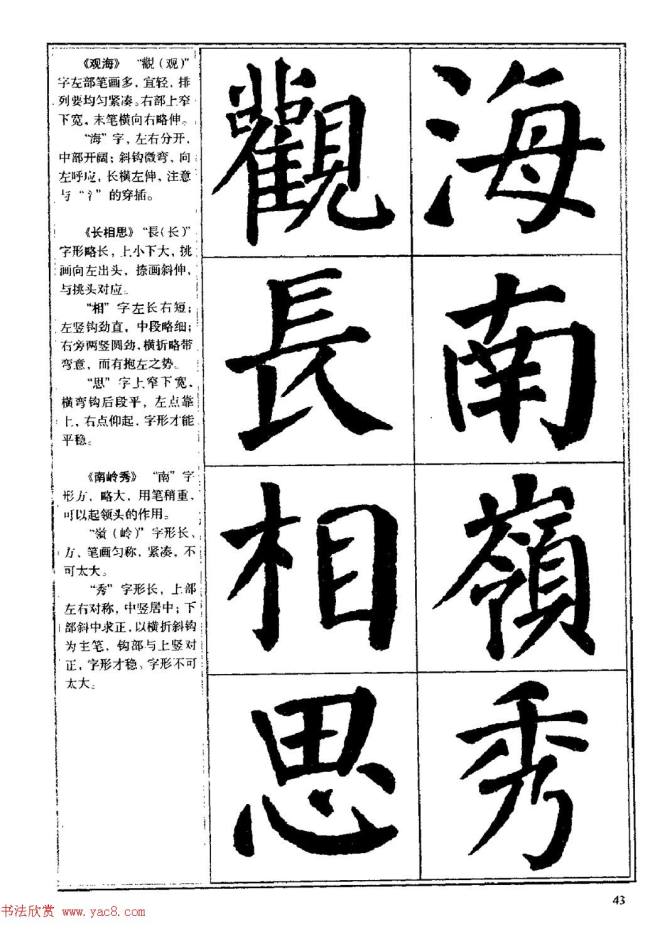 《观海》 “觀(观)”
字左部笔画多，宜轻，排
列要均匀紧凑。右部上窄
下宽，末笔横向右略伸。
“海”字，左右分开，
中部开阔；斜钩微弯，向
左呼应，长横左伸，注意
与“氵”的穿插。
《长相思》“長(长)”
字形略长，上小下大，挑
画向左出头，捺画斜伸，
与挑头对应。
“相”字左长右短；
左竖钩劲直，中段略细；
右旁两竖圆劲，横折略带
弯意，而有抱左之势。
“思”字上窄下宽，
横弯钩后段平，左点靠
上，右点仰起，字形才能
平稳。
《南岭秀》 “南”字
形方，略大，用笔稍重，
可以起领头的作用。
“嶺(岭)”字形长、
方，笔画匀称，紧凑，不
可太大。
“秀”字形长，上部
左右对称，中竖居中；下
部斜中求正，以横折斜钩
为主笔，钩部与上竖对
正，字形才稳，字形不可
太大。
觀 海
長 南
相 嶺
思 秀
43
书法欣赏 www.yac8.com